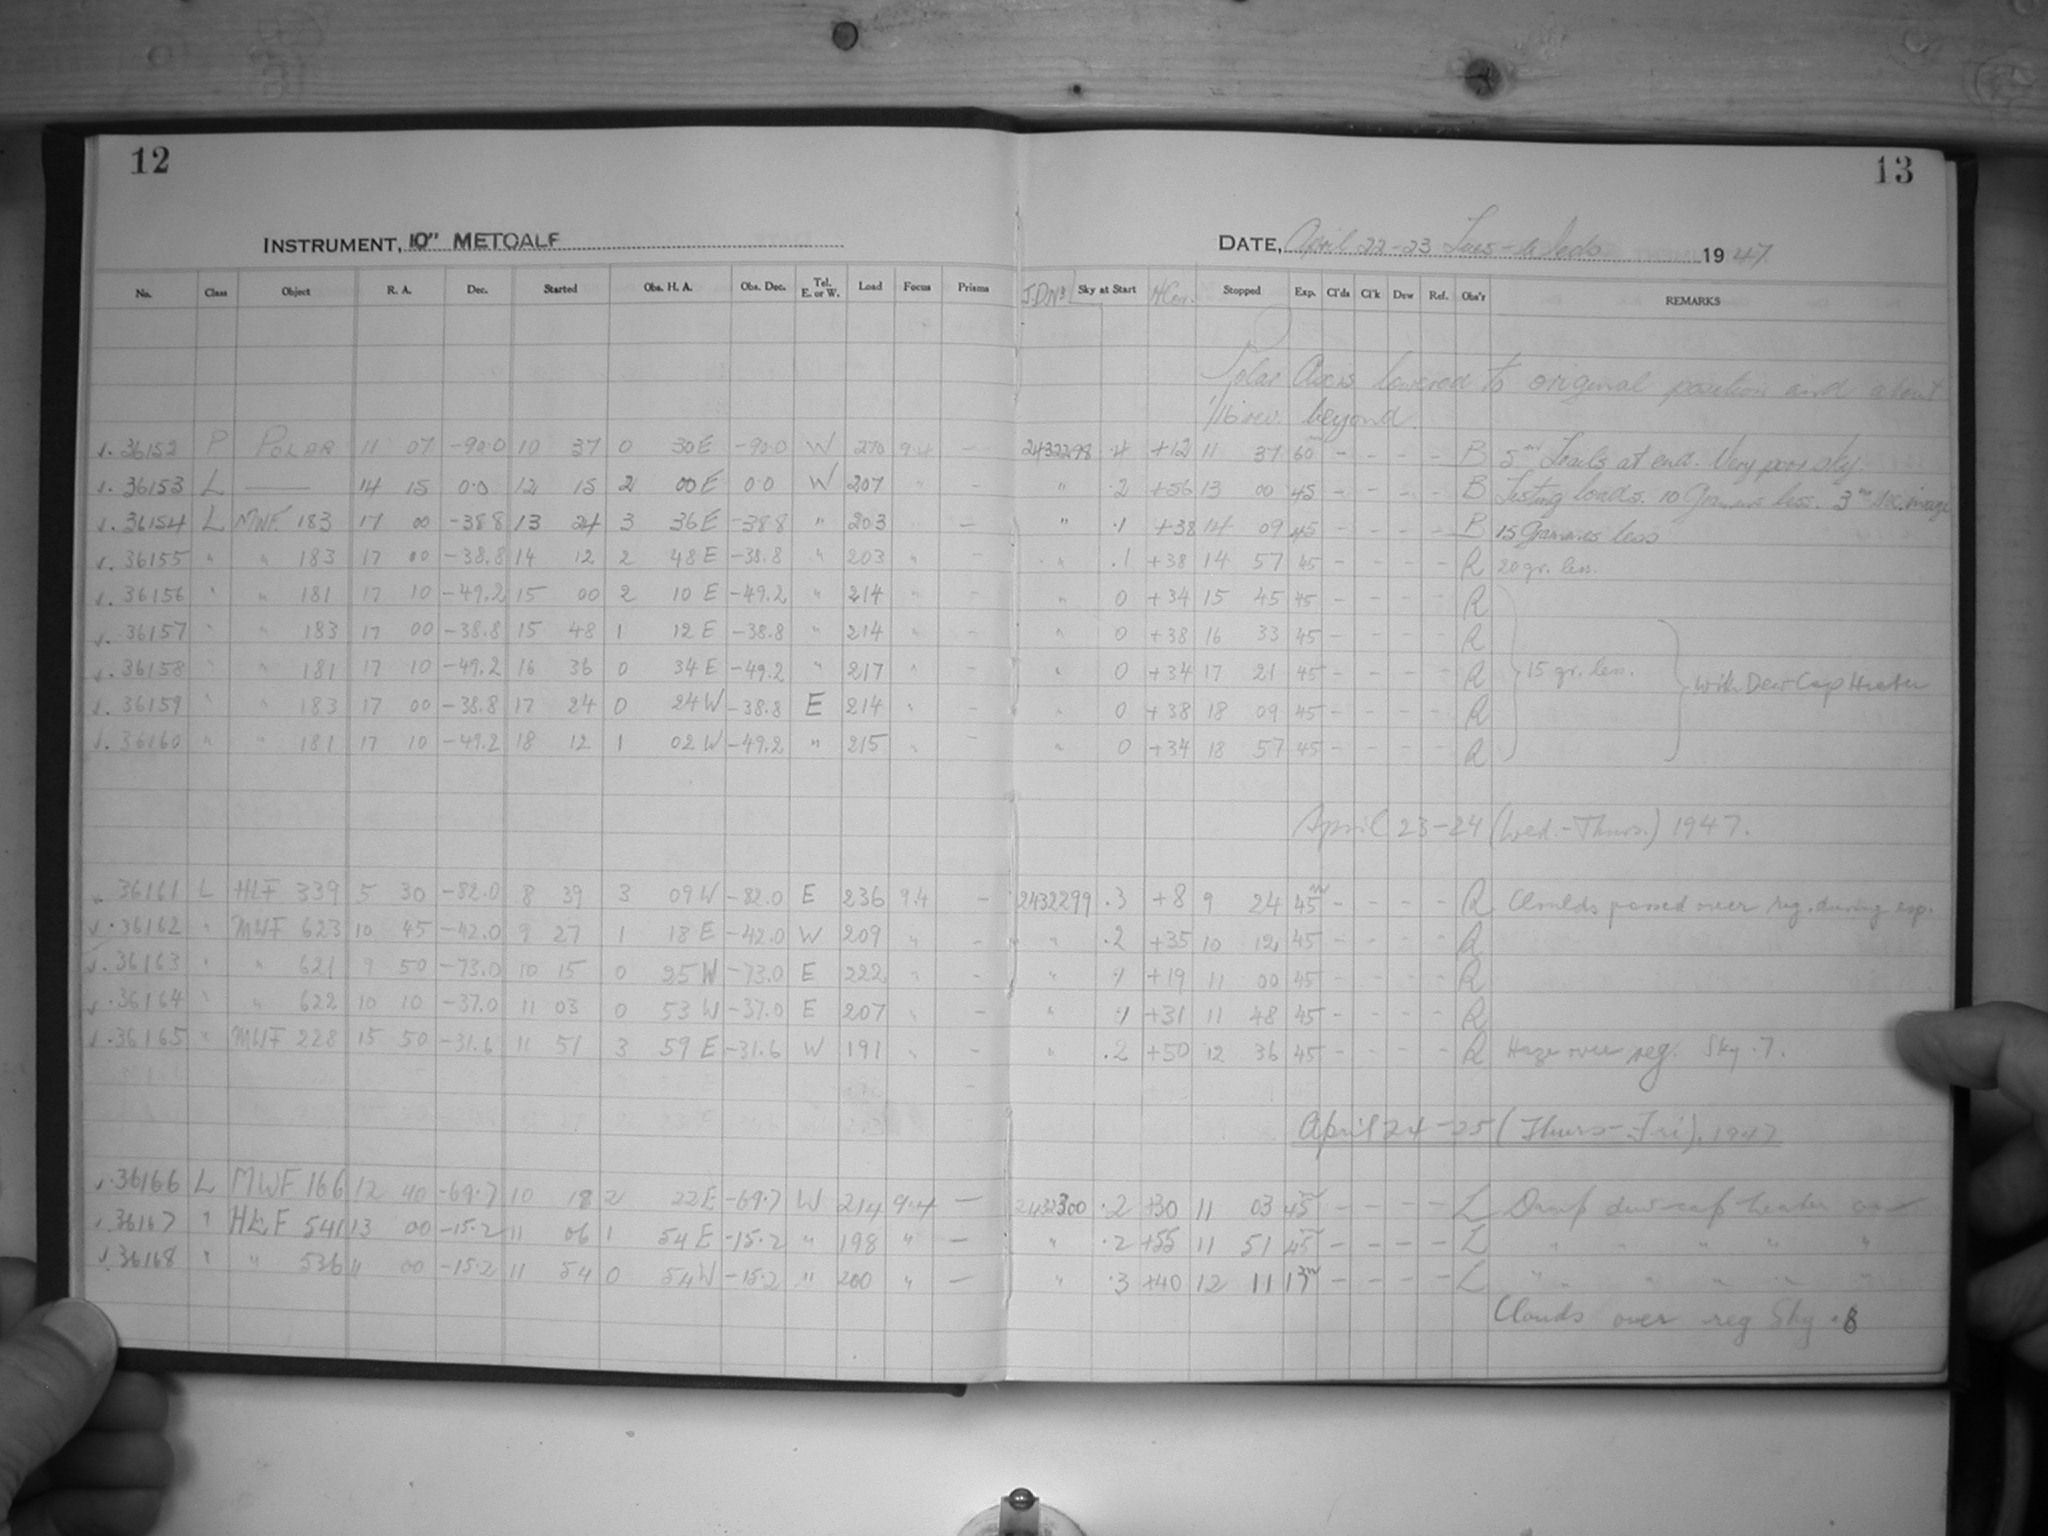 12
13
INSTRUMENT, 10" METCALF
DATE, April 22-23 Tues-Weds 1947
No. Class Object R. A. Dec. Started Obs. H. A. Obs. Dec. Tel. E. or W. Load Focus Prisms J.D. No Sky at Start H Cor. Stopped Exp. Cl'ds Cl'k Dew Ref. Obs'r REMARKS
Polar Axis lowered to original position and about
1/16 rev. beyond.
36152 P POLAR 11 07 -90.0 10 37 0 30 E -90.0 W 270 9.4 — 2432298 .4 +12 11 37 60 - - - - B 5m Trails at end. Very poor sky.
36153 L — 14 15 0.0 12 15 2 00 E 0.0 W 207 " " .2 +56 13 00 45 - - - - B Testing loads. 10 Grammes less. 3m sec. image
36154 L MWF 183 17 00 -38.8 13 24 3 36 E -38.8 " 203 — " .1 +38 14 09 45 - - - - B 15 Grammes less
36155 " " 183 17 00 -38.8 14 12 2 48 E -38.8 " 203 " - " .1 +38 14 57 45 - - - - R 20 gr. less.
36156 " " 181 17 10 -49.2 15 00 2 10 E -49.2 " 214 " - " 0 +34 15 45 45 - - - - R
36157 " " 183 17 00 -38.8 15 48 1 12 E -38.8 " 214 " - " 0 +38 16 33 45 - - - - R
36158 " " 181 17 10 -49.2 16 36 0 34 E -49.2 " 217 " - " 0 +34 17 21 45 - - - - R 15 gr. less. with Dew Cap Heater
36159 " " 183 17 00 -38.8 17 24 0 24 W -38.8 E 214 " - " 0 +38 18 09 45 - - - - R
36160 " " 181 17 10 -49.2 18 12 1 02 W -49.2 " 215 " - " 0 +34 18 57 45 - - - - R
April 23-24 (Wed.-Thurs.) 1947.
36161 L HLF 339 5 30 -82.0 8 39 3 09 W -82.0 E 236 9.4 - 2432299 .3 +8 9 24 45m - - - - R Clouds passed over reg. during exp.
36162 " MWF 623 10 45 -42.0 9 27 1 18 E -42.0 W 209 " - " .2 +35 10 12 45 - - - - R
36163 " " 621 9 50 -73.0 10 15 0 25 W -73.0 E 222 " - " .1 +19 11 00 45 - - - - R
36164 " " 622 10 10 -37.0 11 03 0 53 W -37.0 E 207 " - " .1 +31 11 48 45 - - - - R
36165 " MWF 228 15 50 -31.6 11 51 3 59 E -31.6 W 191 " - " .2 +50 12 36 45 - - - - R Haze over reg. Sky .7.
April 24-25 (Thurs-Fri), 1947
36166 L MWF 166 12 40 -69.7 10 18 2 22 E -69.7 W 214 9.4 — 2432300 .2 +30 11 03 45m - - - - L Damp dew-cap heater on
36167 " HLF 541 13 00 -15.2 11 06 1 54 E -15.2 " 198 " — " .2 +55 11 51 45m - - - - L " " " " "
36168 " " 536 11 00 -15.2 11 54 0 54 W -15.2 " 200 " — " .3 +40 12 11 17m - - - - L " " " " " "
Clouds over reg Sky .8